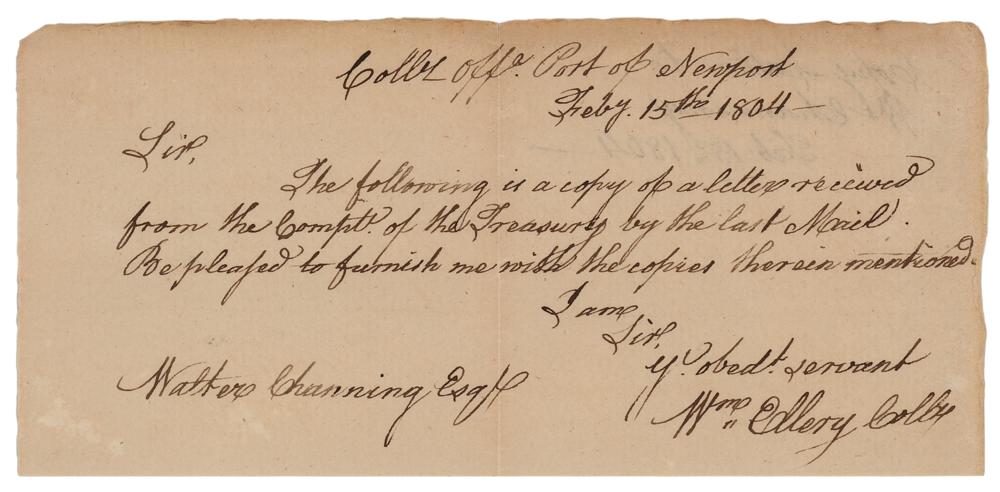 Collrs Offe. Port of Newport
Feby. 15th 1804 —
Sir,
The following is a copy of a letter received
from the Compt. of the Treasury by the last Mail.
Be pleased to furnish me with the copies therein mentioned.
I am
Sir,
Yr. obedt. servant
Walter Channing Esqr
Wm Ellery Collr